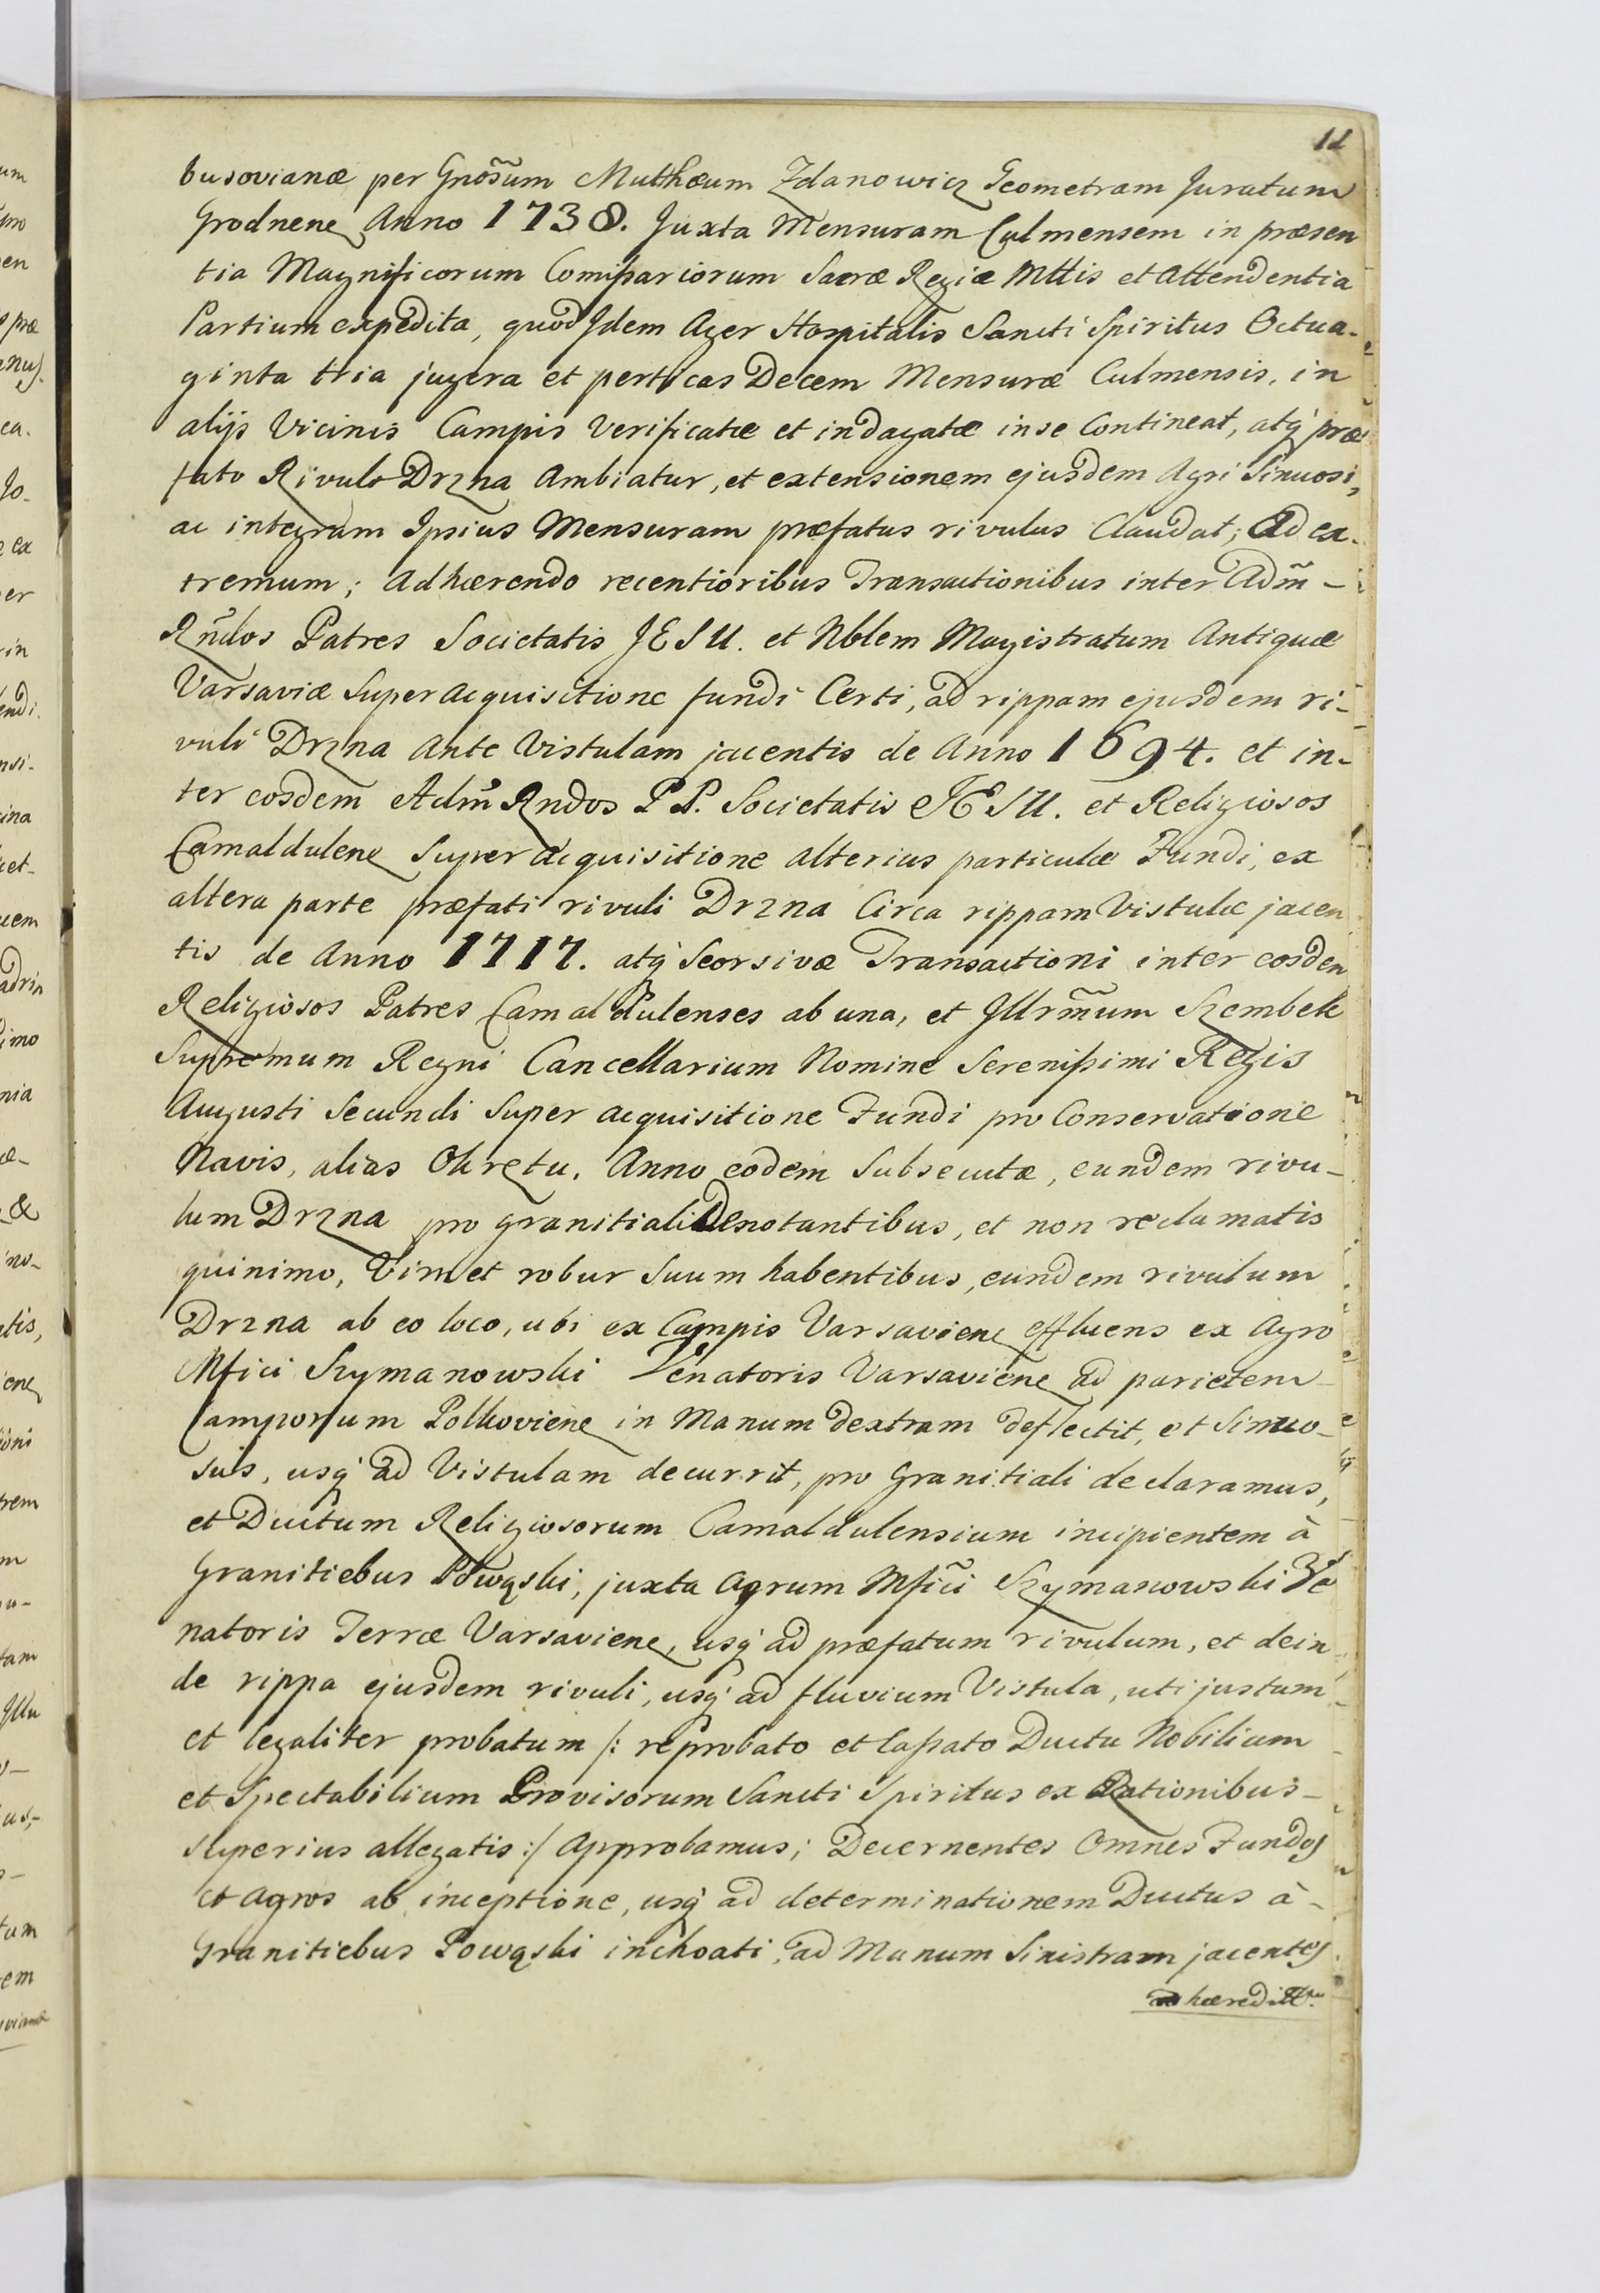 11
busovianæ per Gnõsum Mathæum Zdanowicz Geometram Juratum
Grodnene Anno 1738. Juxta Mensuram Culmensem in præsen
tia Magnificorum Comißariorum Sacræ Regiæ Mttis et Attendentia
Partium expedita, quod Idem Ager Hospitalis Sancti Spiritus Octua-
ginta tria jugera et perticas Decem Mensuræ Culmensis, in
alijs Vicinis Campis Verificatæ et indagatæ in se Contineat, atq' præ
fato Rivulo Drzna Ambiatur, et extensionem ejusdem Agri Sinuosi,
ac integram Ipsius Mensuram præfatus rivulus Claudat; Ad ex-
tremum; Adhærendo recentioribus Transactionibus inter Adm̃ -
Rñdos Patres Societatis JESU. et Nblem Magistratum Antiquæ
Varsaviæ Super Acquisitione fundi Certi, ad rippam ejusdem ri-
vuli Drzna Ante Vistulam jacentis de Anno 1694. et in-
ter eosdem Adm̃ Rndos PP. Societatis JESU. et Religiosos
Camaldulene Super Acquisitione alterius particulæ Fundi, ex
altera parte præfati rivuli Drzna Circa rippam Vistulæ jacen
tis de Anno 1717. atq' Seorsivæ Transactioni inter eosdem
Religiosos Patres Camaldulenses ab una, et Jllrm̃um Szembek
Supremum Regni Cancellarium Nomine Serenißimi Regis
Augusti Secundi Super acquisitione Fundi pro Conservatione
Navis, alias Okrętu, Anno eodem Subsecutæ, eundem rivu-
lum Drzna pro granitiali Denotantibus, et non reclamatis
quinimo, Vim et robur Suum habentibus, eundem rivulum
Drzna ab eo loco, ubi ex Campis Varsaviene effluens ex Agro
Mfici Szymanowski Venatoris Varsaviene ad parietem
Camporum Polkoviene in Manum dextram deflectit, et Sinuo-
sus, usq' ad Vistulam decurrit, pro Granitiali declaramus,
et Ductum Religiosorum Camaldulensium incipientem à
Granitiebus Powąski, juxta Agrum Mfic̃i Szymanowski Ve
natoris Terræ Varsaviene, usq' ad præfatum rivulum, et dein
de rippa ejusdem rivuli, usq' ad fluvium Vistula, uti justum
et legaliter probatum /: reprobato et Caßato Ductu Nobilium
et Spectabilium Provisorum Sancti Spiritus ex Rationibus -
superius allegatis :/ Approbamus; Decernentes Omnes Fundos
et Agros ab inceptione, usq' ad determinationem Ductus à -
Granitiebus Powąski inchoati, ad Manum Sinistram jacentes